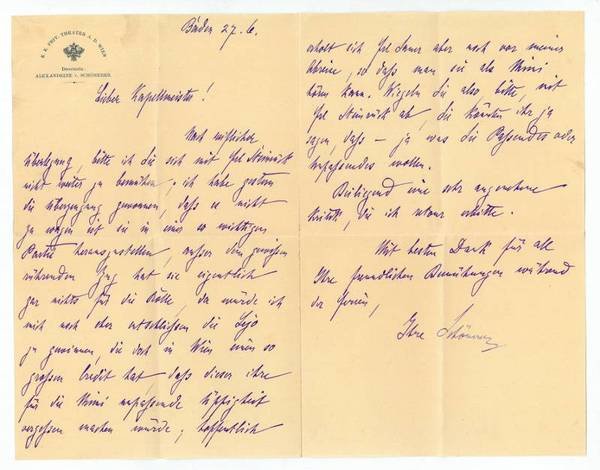 K. K. PRIV. THEATER A. D. WIEN
Direction:
ALEXANDRINE v. SCHÖNERER
Baden 27. 6.
Lieber Kapellmeister!
Nach reiflicher
Überlegung, bitte ich Sie sich mit Frl Steinrück
nicht weiter zu bemühen, ich habe gestern
die Überzeugung gewonnen, daß es nicht
zu wagen ist sie in einer so wichtigen
Partie herauszustellen, außer dem gewissen
rührenden Zug hat sie eigentlich
gar nichts für die Rolle, da würde ich
mich noch eher entschließen die
zu gewinnen, die doch in Wien einen so
großen Credit hat daß dieser ihre
für die Mimi unpassende Üppigkeit
vergessen machen würde; hoffentlich
erholt sich Frl aber noch vor meiner
Abreise, so daß man sie als Mimi
hören kann. Wiegeln Sie also bitte, mit
Frl Steinrück ab, Sie könnten ihr ja
sagen, daß – ja was Sie Passendes oder
unpassendes wollen.
Beiliegend eine sehr angenehme
Kritik, die ich retour erbitte.
Mit besten Dank für alle
Ihre freundlichen Bemühungen während
der Ferien,
Ihre Schönerer